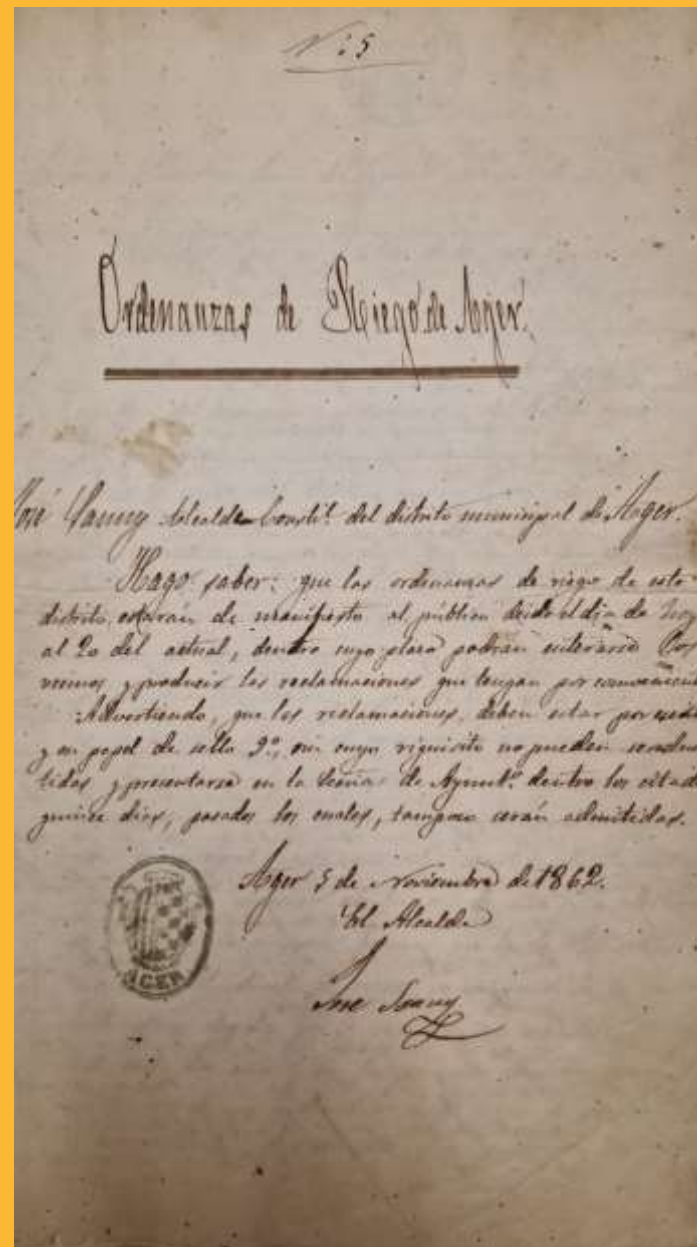 Nº 5
Ordenanzas de Riego de Ager.
José Alcalde Constil. del distrito municipal de Ager.
Hago saber: que las ordenanzas de riego de este
distrito, estarán de manifiesto al público desde el dia de hoy
al 20 del actual, dentro cuyo plazo podrán enterarse los
vecinos y producir las reclamaciones que tengan por
Advertiendo, que las reclamaciones, deben estar por
y en papel de sello 9º, sin cuyo riquisito no pueden ser
tidas y presentarse en la de Ayuntº. dentro los
quince dias, pasados los cuales, tampoco serán admitidas.
Ager 5 de Noviembre de 1862.
El Alcalde
José
AGER